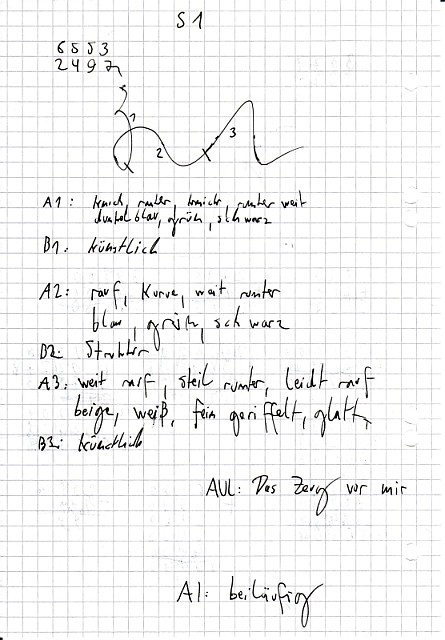 S 1
6 5 5 3
2 4 9 7
1
2
3
A1: knick, runter, knick, runter weit
dunkelblau, grün, schwarz
B1: künstlich
A2: rauf, Kurve, weit runter
blau, grün, schwarz
B2: Struktur
A3: weit rauf, steil runter, leicht rauf
beige, weiß, fein geriffelt, glatt,
B3: künstlich
AUL: Das Zeug vor mir
AI: beiläufig